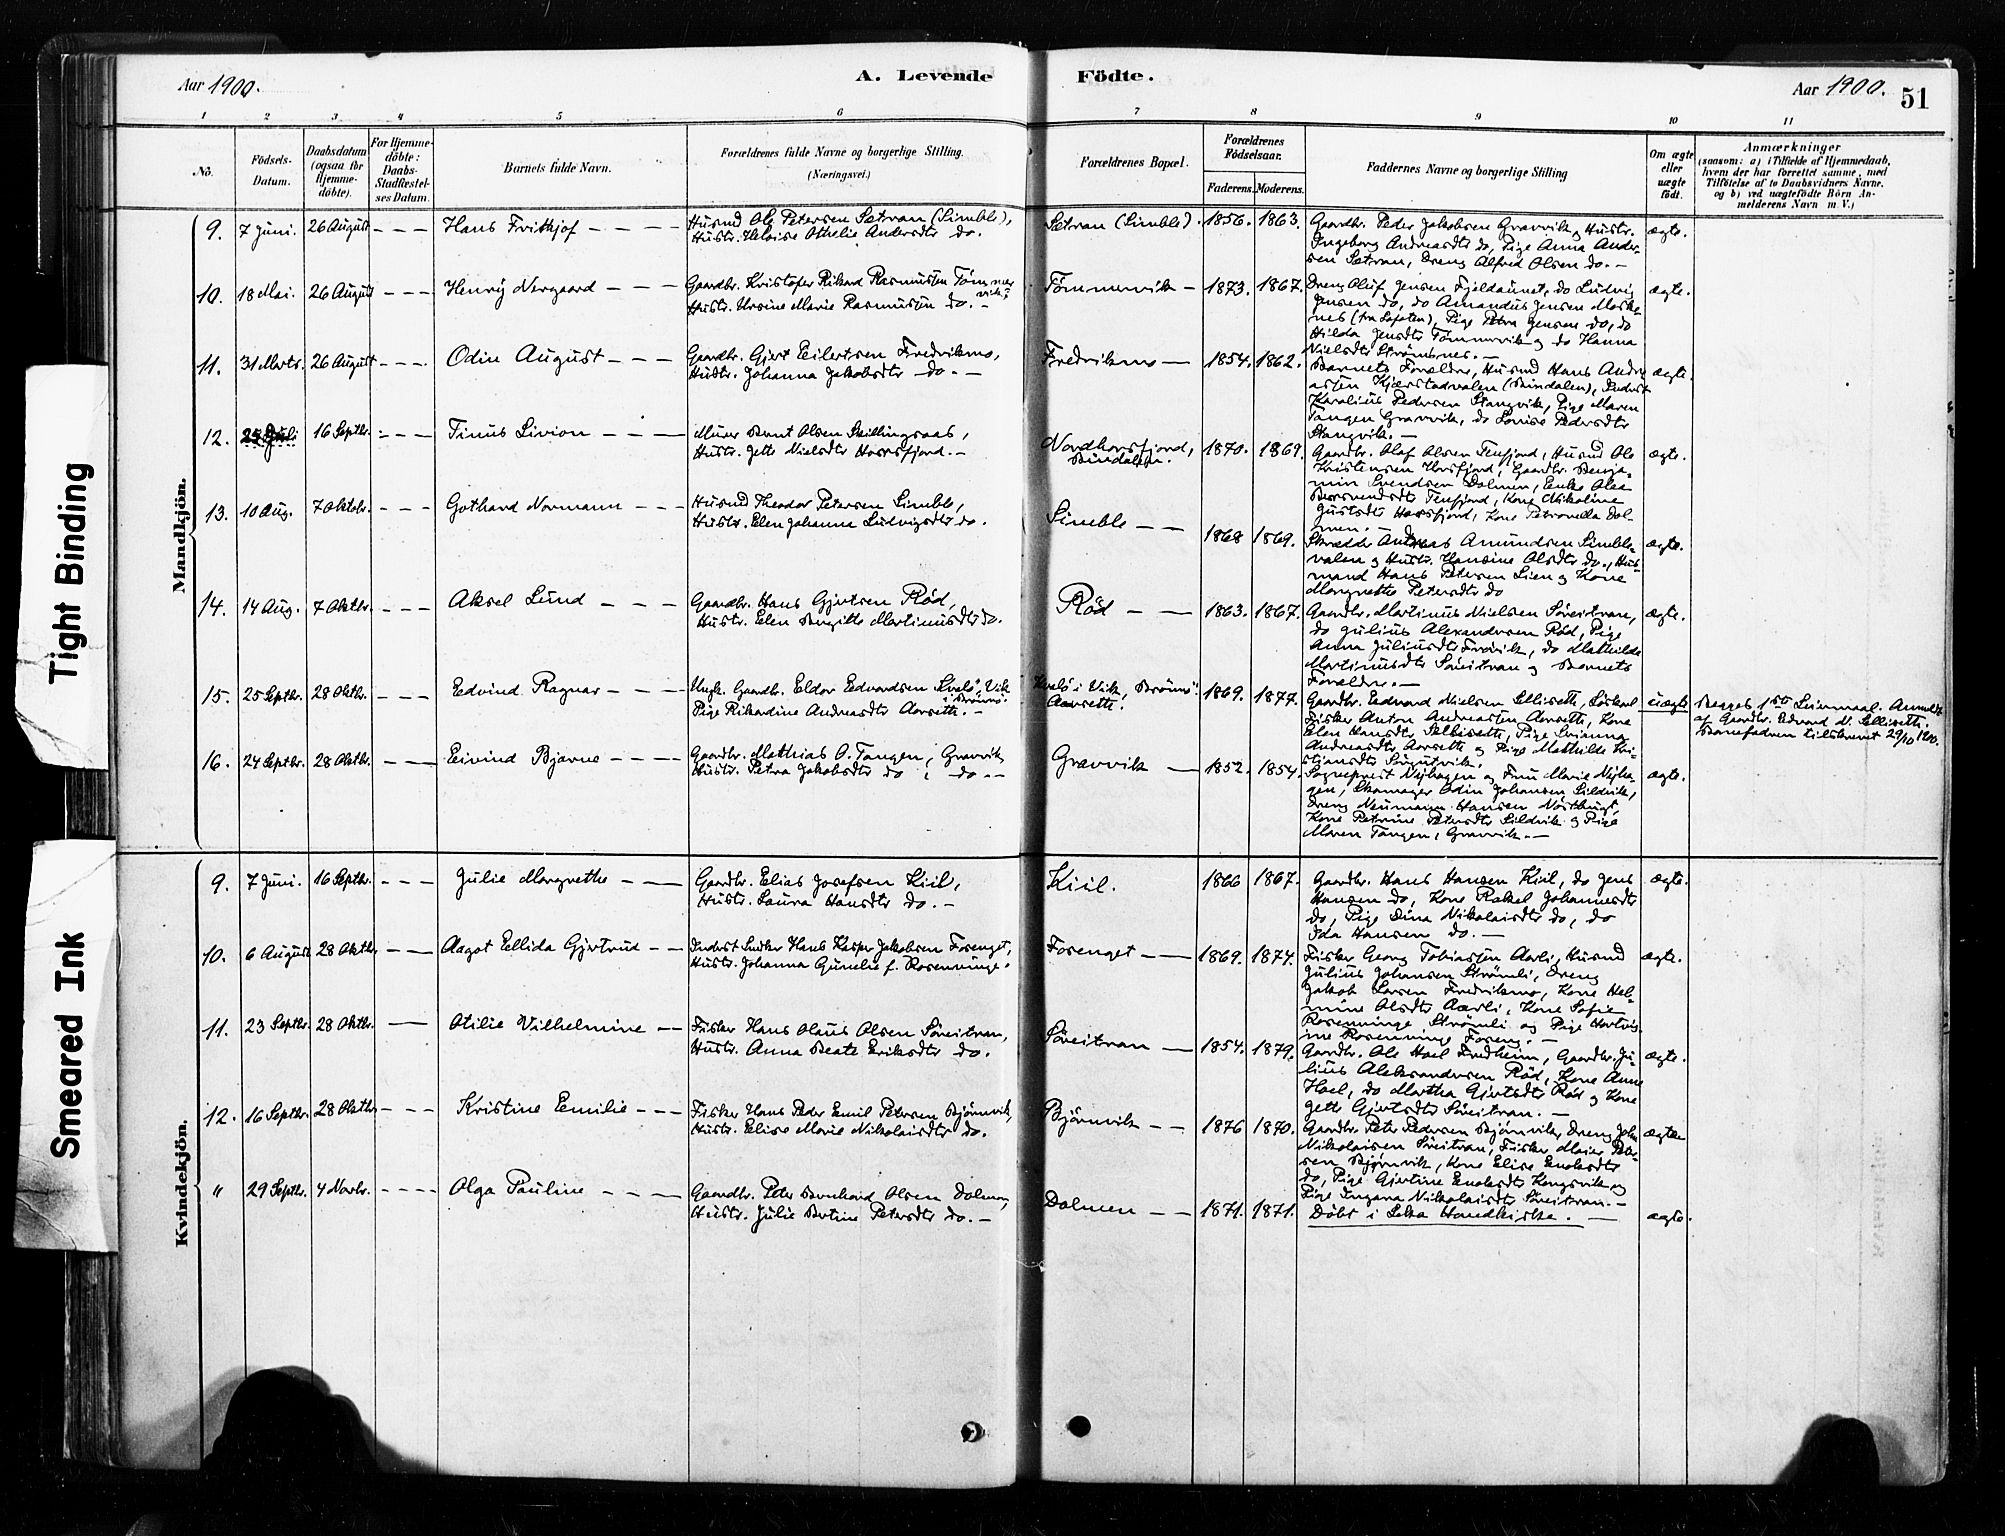 Aar 1900.
A. Levende
Födte.
Aar 1900.
51
1
2
3
4
5
6
7
8
9
10
11
No.
Födsels-
Datum.
Daabsdatum
(ogsaa for
Hjemme-
döbte).
For Hjemme-
döbte:
Daabs-
Stadfæstel-
ses Datum.
Barnets fulde Navn.
Forældrenes fulde Navne og borgerlige Stilling.
(Næringsvei.)
Forældrenes Bopæl.
Forældrenes
Födselsaar.
Faderens.
Moderens.
Faddernes Navne og borgerlige Stilling
Om ægte
eller
uægte
födt.
Anmærkninger
(saasom: a) i Tilfælde af Hjemmedaab,
hvem der har forrettet samme, med
Tilföielse af to Daabsvidners Navne.
og b) ved uægtefödte Börn An-
melderens Navn m. V.)
Mandkjön.
9. 7 Juni. 26 August - - - Hans Frithjof - - - -
Husmd Ole Petersen Setran (Simble),
Hustr. Heloise Othelie Andersdtr do.
Setran (Simble). 1856. 1863.
Gaardbr. Peder Jakobsen Gravvik og Hustr.
Ingeborg Andreasdtr do, Pige Anna Ander-
sen Setran, Dreng Alfred Olsen do. -
ægte.
10. 18 Mai. 26 August - - - Henry Nergaard - - -
Gaardbr. Kristofer Rikard Rasmussen Tömmer
vik,
Hustr. Ursine Marie Rasmussen do. -
Tömmervik - 1873. 1867.
Dreng Oluf Jensen Fjeldaunet, do Ludvig
Jensen do, do Amandus Jensen Moske-
nes (fra Lofoten), Pige Petra Jensen do, do
Hilda Jensdtr Tömmervik og do Hanna
Nielsdtr Strömsnes. -
ægte.
11. 31 Marts. 26 August - - - Odin August - - -
Gaardbr. Gjert Eilertsen Fredriksmo,
Hustr. Johanna Jakobsdtr do. -
Fredriksmo - 1854. 1862.
Barnets Forældre, Husmd Hans Andre
assen Kjerstadvalen (Bindalen), Inderst
Karolius Pedersen Stangvik, Pige Maren
Tangen Gravvik, do Louise Pedersdtr
Stangvik. -
ægte.
12. 25 Juli 16 Septbr. - - - Tinus Livion - - -
Murer Bernt Olsen Skillingsaas,
Hustr. Jette Nielsdtr Horsfjord. -
Nordhorsfjord,
Bindalen. 1870. 1869.
Gaardbr. Olaf Olsen Terfjord, Husmd Ole
Kristensen Horsfjord, Gaardbr. Benja-
min Svendsen Dolmen, Enke Olea
Terfjord, Kone Nikoline
Horsfjord, Kone Petronella Dol-
men. -
ægte.
13. 10 Aug. 7 Oktobr. - - - Gothard Normann - - -
Husmd Theodor Petersen Simble,
Hustr. Elen Johanna Ludvigsdtr do.
Simble - - 1868 1869.
Skrædder Andreas Amundsen Simble-
valen og Hustr. Hansine Olsdtr do., Hus-
mand Hans Petersen Lien og Kone
Margrethe Petersdtr do
ægte.
14. 14 Aug. 7 Oktbr. - - - Aksel Lund - - -
Gaardbr. Hans Gjertsen Röd,
Hustr. Elen Bergitte Martinusdtr do.
Röd - - 1863. 1867.
Gaardbr. Martinus Nielsen Söreitran,
do Julius Alexandersen Röd, Pige
Anna Juliusdtr Frövik, do Mathilde
Martinusdtr Söreitran og Barnets
Forældre. -
ægte.
15. 25 Septbr. 28 Oktbr. - - - Edvind Ragnar - - -
Ungk. Gaardb. Eldor Edvardsen Kvelö i Vik
i Brönnö.
Pige Rikardine Andreasdtr Aarsette. -
Kvelö i Vik, Brönnö.
Aarsette. 1869. 1877.
Gaardbr. Edvard Nielsen Sellisette,
Fisker Anton Andreassen Aarsette, Kone
Elen Hansdtr Sellisette, Pige
Andreasdtr Aarsette og Pige Mathilde Kri-
stiansdtr
uægte
Begges 1ste Leiermaal. Anmeldt
af Gaardbr. Edvard N. Sellisette.
Barnefadren tilskrevet 29/10 1900.
16. 24 Septbr. 28 Oktbr. - - - Eivind Bjarne - - - -
Gaardbr. Mathias O. Tangen, Gravvik,
Hustr. Petra Jakobsdtr do, do. -
Gravvik - 1852. 1854.
Sogneprest Nejhagen og Fru Marie Nejha-
gen, Skomager Odin Johansen Sildvik,
Dreng Neumann Hansen Nordbugt,
Kone Petrine Petersdtr Sildvik og Pige
Maren Tangen, Gravvik. -
ægte.
Kvindekjön.
9. 7 Juni. 16 Septbr. - - - Julie Margrethe - - -
Gaardbr. Elias Josefsen Kiil,
Hustr. Laura Hansdtr do. -
Kiil. 1866 1867.
Gaardbr. Hans Hansen Kiil, do Jens
Hansen do, Kone Rakel Johannesdtr
do, Pige Dina Nikolaisdtr do, do
Ida Hansen do. -
ægte.
10. 6 August 28 Oktbr. - - Aagot Ellida Gjertrud - -
Inderst Snedker Hans Kasper Jakobsen Forenget,
Hustr. Johanna Gunelie f. Rosenvinge.
Forenget - - 1869. 1874.
Fisker Georg Tobiassen Aarli, Husmd
Julius Johansen Strömli, Dreng
Jakob Larsen Fredriksmo, Kone Hel-
mine Olsdtr Aarli, Kone Sofie
Rosenvinge Strömli og Pige Hartvig-
ine Rosenvinge Foreng. -
ægte.
11. 23 Septbr. 28 Oktbr. - Otilie Vilhelmine - -
Fisker Hans Olaus Olsen Söreitran,
Hustr. Anna Beate Eriksdtr do.
Söreitran - 1854. 1879.
Gaardbr. Ole Hoel Fredheim, Gaardbr. Ju-
lius Aleksandersen Röd, Kone Anne
Hoel, do Martha Gjertsdtr Röd og Kone
Jette Gjertsdtr Söreitran. -
ægte.
12. 16 Septbr. 28 Oktbr. - - - Kristine Emilie - - -
Fisker Hans Peder Emil Petersen Bjönnvik,
Hustr. Elise Marie Nikolaisdtr do.
Björnvik - - 1876 1870.
Gaardbr. Peter Pedersen Björnvik, Dreng John
Nikolaisen Söreitran, Fisker Meier Peter-
sen Bjönnvik, Kone Elise Enoksdtr
do, Pige Gjertine Enoksdtr Kongsvik og
Pige Ingara Nikolaisdtr Söreitran. -
ægte
" 29 Septbr. 4 Novbr. - - - - Olga Pauline - - - -
Gaardbr. Peter Bernhard Olsen Dolmen,
Hustr. Julie Bertine Petersdtr do. -
Dolmen - - 1871. 1871.
Döbt i Leka Hovedkirke. -
ægte.
Tight Binding
Smeared Ink